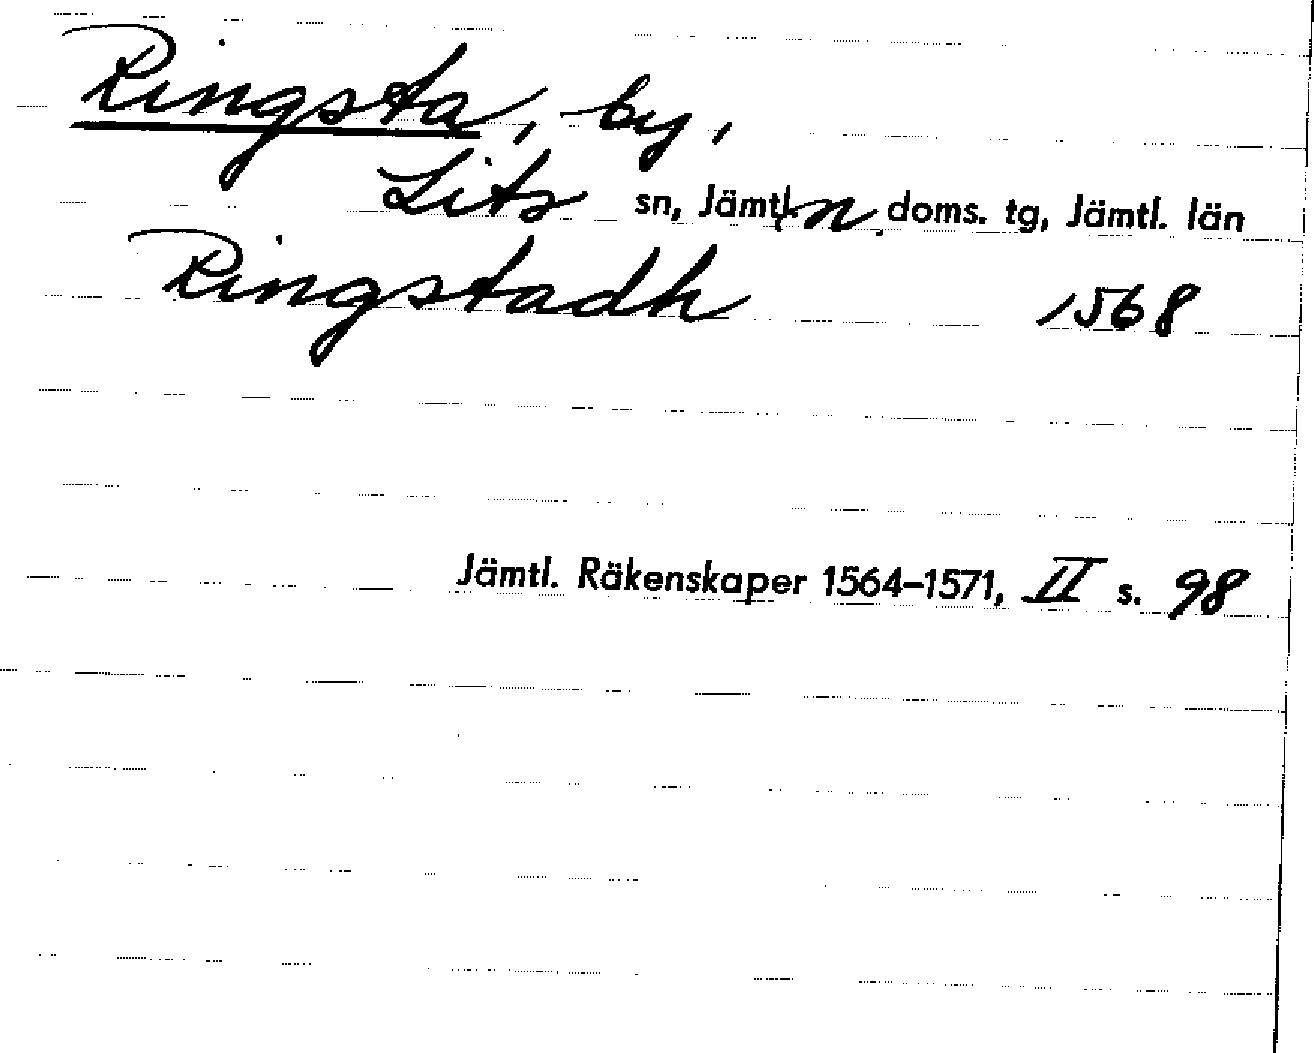 Ringsta, by,
Lits sn, Jämtl. n. doms. tg, Jämtl. län
Ringstadh 1568
Jämtl. Räkenskaper 1564–1571, II s. 98